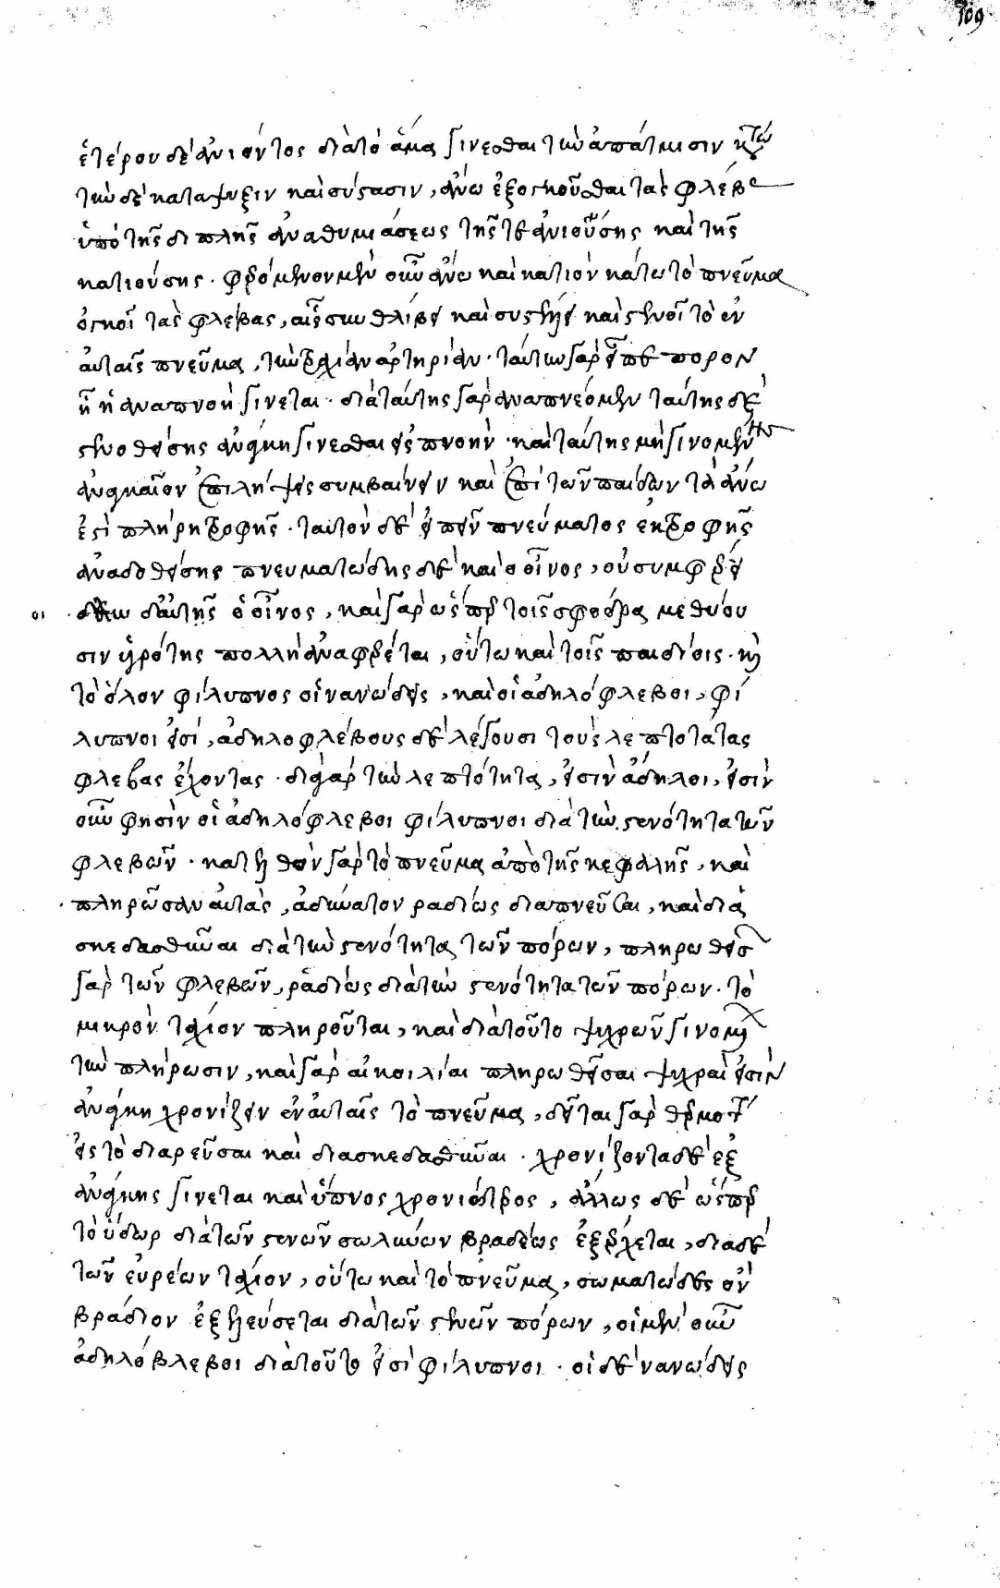 109
ἑτέρου δὲ ἀνιόντος διὰ τὸ ἅμα γίνεσθαι τὴν ἀπάτμισιν καὶ
τὴν δὲ κατάψυξιν καὶ σύστασιν, ἄνω ἐξογκοῦσθαι τὰς φλέβας
ὑπὸ τῆς διπλῆς ἀναθυμιάσεως τῆς τε ἀνιούσης καὶ τῆς
κατιούσης. φερόμενον μὲν οὖν ἄνω καὶ κατιὸν κάτω τὸ πνεῦμα
ὀγκοῖ τὰς φλέβας, αἷς συνθλίβει καὶ συστέλλει καὶ στενοῖ τὸ ἐν
αὐταῖς πνεῦμα, τὴν τραχεῖαν ἀρτηρίαν. ταύτην γὰρ εἶπε πόρον
ᾗ ἡ ἀναπνοὴ γίνεται. διὰ ταύτης γὰρ ἀναπνέομεν ταύτης δὲ
στενωθείσης ἀνάγκη γίνεσθαι εἰσπνοήν. καὶ ταύτης μὴ γινομένης
ἀναγκαῖον ἐπιλήψεις συμβαίνειν καὶ ἐπὶ τῶν παίδων τὰ ἄνω
ἐστὶ πλήρη τροφῆς. ταὐτὸν δὲ εἰπεῖν πνεύματος ἐκ τροφῆς
ἀναδοθείσης πνευματώδης δὲ καὶ ὁ οἶνος, οὐ συμφέρει
δι' αὐτῆς ὁ οἶνος, καὶ γὰρ ὥσπερ τοῖς σφόδρα μεθύου
σιν ὑγρότης πολλὴ ἀναφέρεται, οὕτω καὶ τοῖς παιδίοις. καὶ
τὸ ὅλον φίλυπνος οἱ νανώδεις, καὶ οἱ ἀδηλόφλεβοι, φί
λυπνοι εἰσί, ἀδηλοφλέβους δὲ λέγουσι τοὺς λεπτοτάτας
φλέβας ἔχοντας. διὰ γὰρ τὴν λεπτότητα, εἰσὶν ἄδηλοι, εἰσὶν
οὖν φησὶν οἱ ἀδηλόφλεβοι φίλυπνοι διὰ τὴν στενότητα τῶν
φλεβῶν. κατελθὸν γὰρ τὸ πνεῦμα ἀπὸ τῆς κεφαλῆς, καὶ
πληρῶσαν αὐτὰς, ἀδύνατον ῥᾳδίως διαπνεῦσαι, καὶ δια
σκεδασθῆναι διὰ τὴν στενότητα τῶν πόρων, πληρωθεισῶν
γὰρ τῶν φλεβῶν, ῥᾳδίως διὰ τὴν στενότητα τῶν πόρων. τὸ
μικρὸν τάχιον πληροῦται, καὶ διὰ τοῦτο ψυχρῶν γινομένων
τὴν πλήρωσιν, καὶ γὰρ αἱ κοιλίαι πληρωθεῖσαι ψυχραὶ εἰσὶν
ἀνάγκη χρονίζειν ἐν αὐταῖς τὸ πνεῦμα, δεῖται γὰρ θερμότητος
εἰς τὸ διαρεῦσαι καὶ διασκεδασθῆναι. χρονίζοντα δὲ ἐξ
ἀνάγκης γίνεται καὶ ὕπνος χρονιώτερος, ἄλλως δὲ ὥσπερ
τὸ ὕδωρ διὰ τῶν στενῶν σωλήνων βραδέως ἐξέρχεται, διὰ δὲ
τῶν εὐρέων τάχιον, οὕτω καὶ τὸ πνεῦμα, σωματῶδες ὂν
βράδιον ἐξελεύσεται διὰ τῶν στενῶν πόρων, οἱ μὲν οὖν
ἀδηλόβλεβοι διὰ τοῦτο εἰσὶ φίλυπνοι. οἱ δὲ νανώδεις